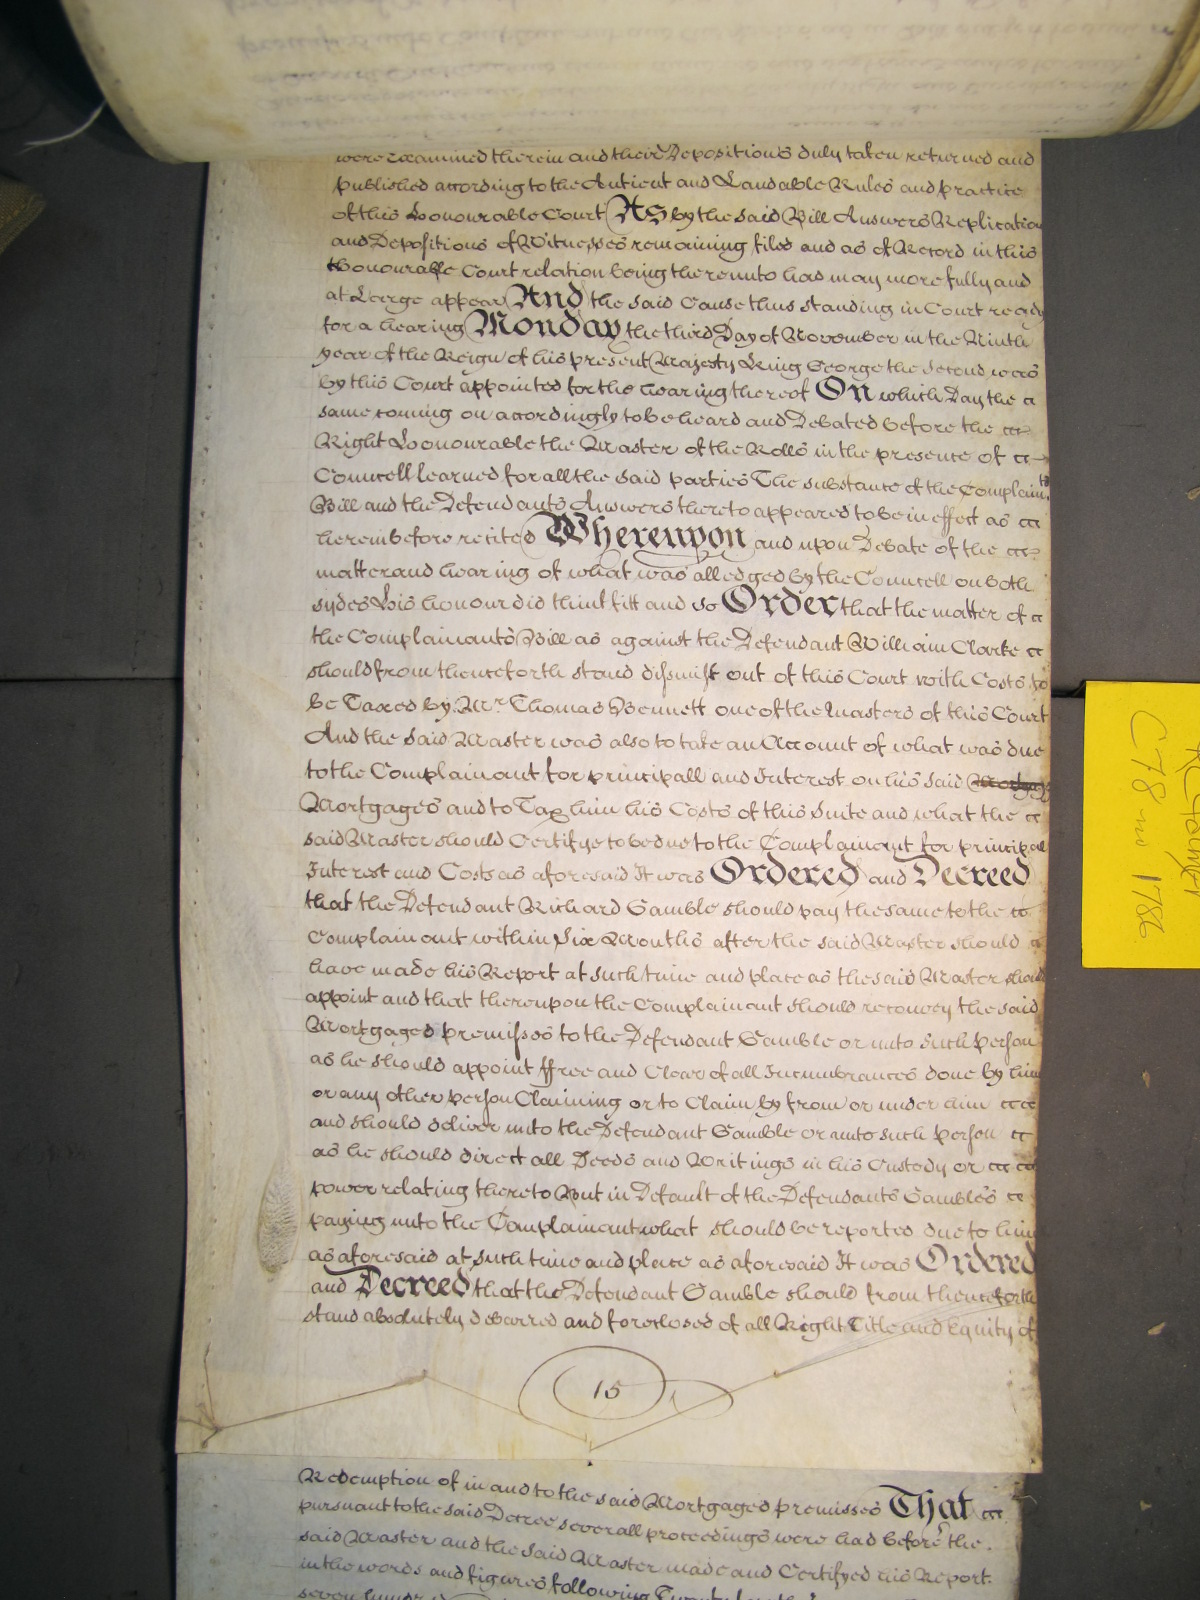 were examined therein and their Depositions duly taken returned and
published according to the Antient and Laudable Rules and practice
of this Honourable Court As by the said Bill Answers Replication
and Depositions of Witnesses remaining filed and as of Record in this
Honourable Court relation being thereunto had may more fully and
at Large appear And the said Cause thus standing in Court ready
for a hearing Monday the third Day of November in the Ninth
year of the Reign of his present Majesty King George the Second was
by this Court appointed for the hearing thereof On which Day the
same coming on accordingly to be heard and Debated before the
Right Honourable the Master of the Rolls in the presence of
Councell learned for all the said parties The substance of the Complain.ts
Bill and the Defendants Answers thereto appeared to be in effect as
hereinbefore recited Whereupon and upon Debate of the
matter and hearing of what was alledged by the Councell on both
sydes His honour did think fitt and so Order that the matter of
the Complainants Bill as against the Defendant William Clarke
should from thenceforth stand dismist out of this Court with Costs to
be Taxed by Mr. Thomas Bennett one of the Masters of this Court
And the said Master was also to take an Account of what was due
to the Complainant for principall and Interest on his said
Mortgages and to Tax him his Costs of this Suite and what the
said Master should Certifye to be due to the Complainant for principal
Interest and Costs as aforesaid It was Ordered and Decreed
that the Defendant Richard Gamble should pay the same to the
Complainant within Six Months after the said Master should
have made his Report at such time and place as the said Master should
appoint and that thereupon the Complainant should reconvey the said
Mortgaged premisses to the Defendant Gamble or unto such person
as he should appoint ffree and Clear of all Incumbrances done by him
or any other person Claiming or to Claim by from or under him
and should deliver unto the Defendant Gamble or unto such person
as he should direct all Deeds and Writings in his Custody or
power relating thereto But in Default of the Defendants Gamble's
paying unto the Complainant what should be reported due to him
as aforesaid at such time and place as aforesaid It was Ordered
and Decreed that the Defendant Gamble should from thenceforth
stand absolutely debarred and foreclosed of all Right Title and Equity of
15
Redemption of in and to the said Mortgaged premisses That
pursuant to the said Decree severall proceedings were had before the
said Master and the said Master made and Certifyed his Report
in the words and figures following Twenty
seven
C78 no 1786